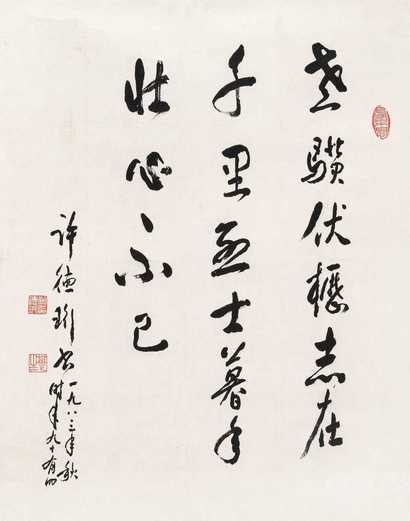 老骥伏枥志在
千里烈士暮年
壮心不已
许德珩书
一九八三年秋
时年九十有四